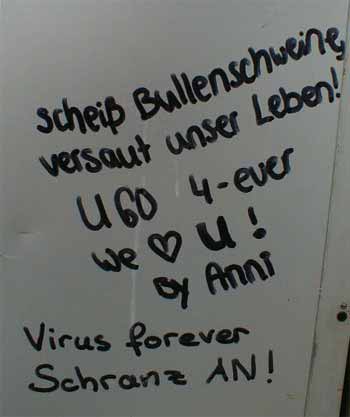 scheiß Bullenschweine,
versaut unser Leben!
U60 4-ever
we ♡ u!
by Anni
Virus forever
Schranz AN!